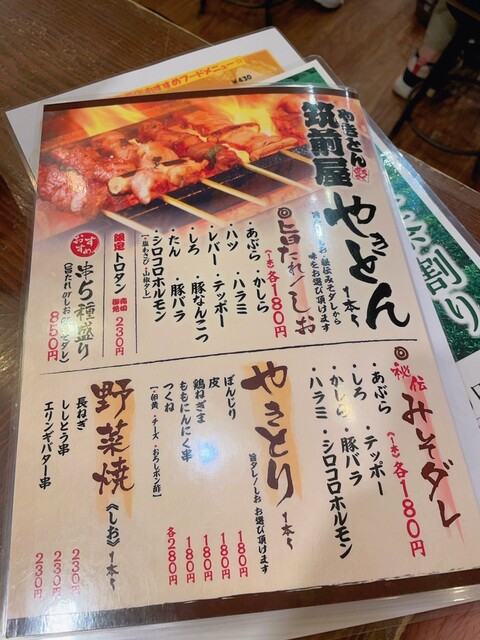 おすすめフードメニュー
¥430
やきとん
筑前屋
やきとん 1本〜
旨だれ/しお・秘伝みそダレから
味をお選び頂けます
旨だれ/しお
(一本)各180円
・あぶら ・かしら
・ハツ ・ハラミ
・レバー ・テッポー
・しろ ・豚なんこつ
・たん ・豚バラ
・シロコロホルモン
[・塩わさび・山椒ダレ]
限定 トロタン
230円
おすすめ
串5種盛り
850円
秘伝みそダレ
(一本)各180円
・あぶら ・テッポー
・しろ ・豚バラ
・かしら ・シロコロホルモン
・ハラミ
やきとり 1本〜
旨ダレ/しお お選び頂けます
ぼんじり 180円
皮 180円
鶏ねぎま 180円
ももにんにく串 180円
つくね 各280円
[・卵黄・チーズ・おろしポン酢]
野菜焼《しお》1本〜
長ねぎ 230円
ししとう串 230円
エリンギバター串 230円
割り